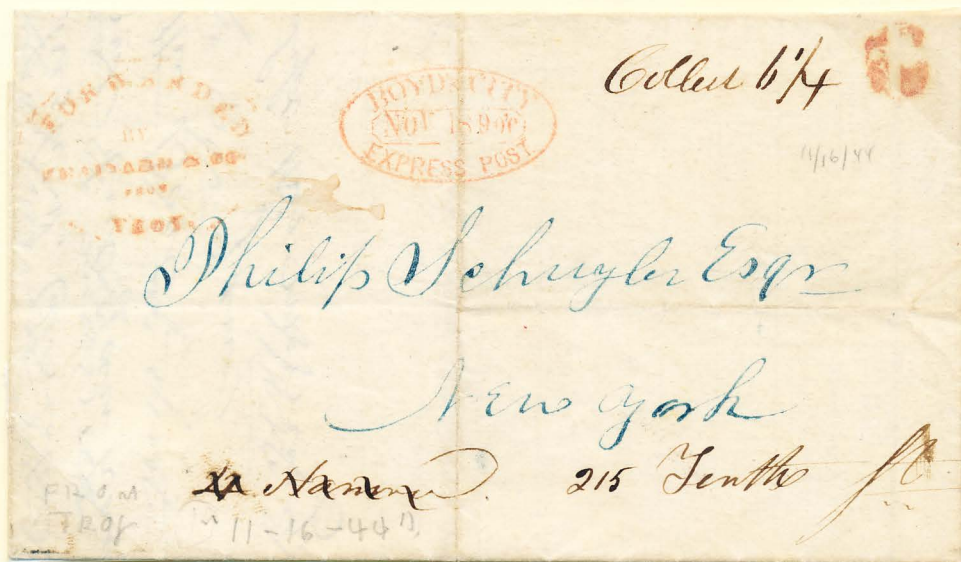 FORWARDED
BY
& CO
FROM
TROY.
BOYD'S CITY
NOV 18 9
EXPRESS POST
Collect 6 1/4
11/16/44
Philip Schuyler Esqr
New York
215 Tenth St
FROM
TROY
"11-16-44".